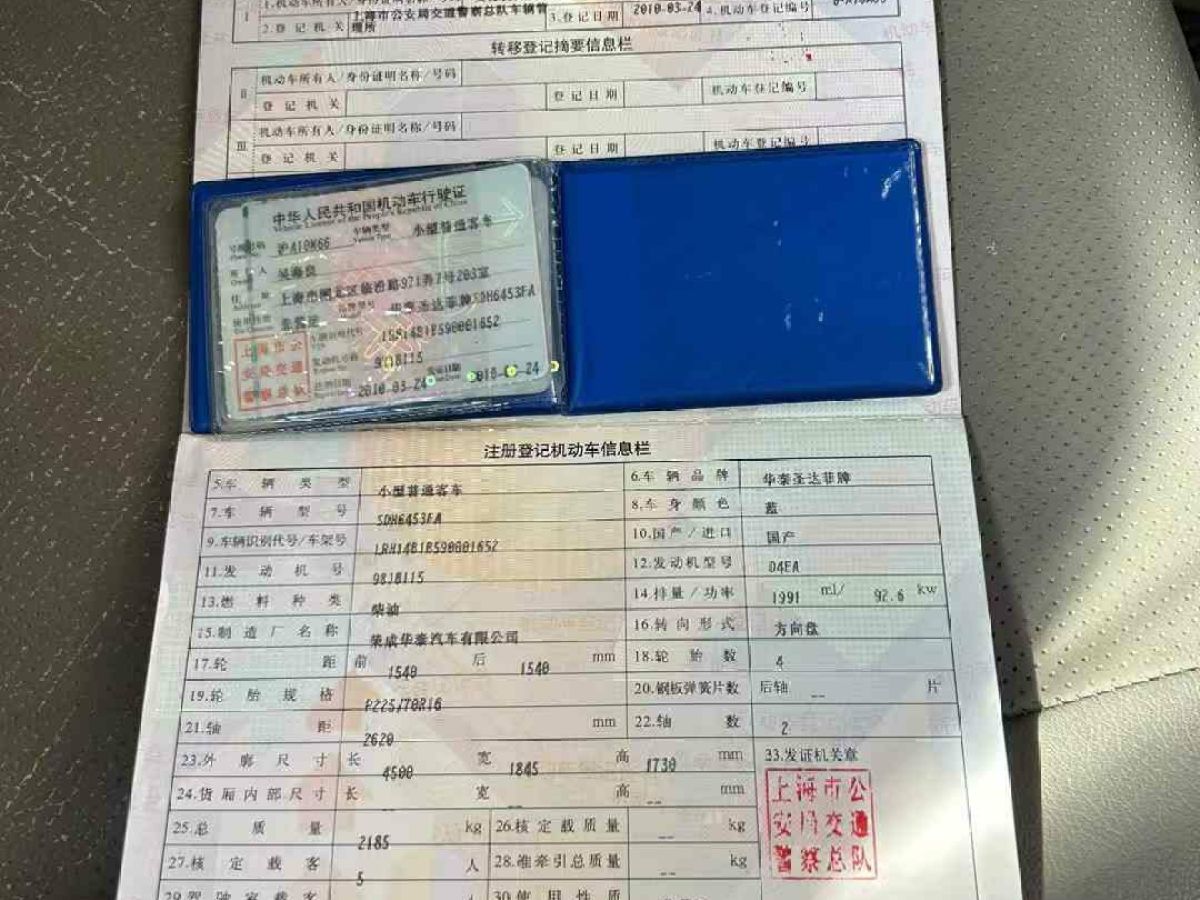 I
1.机动车所有人/身份证明名称/号码
2.登记机关 上海市公安局交通警察总队车辆管理所 3.登记日期 2010-03-24 4.机动车登记编号
转移登记摘要信息栏
II 机动车所有人/身份证明名称/号码
登记机关 登记日期 机动车登记编号
III 机动车所有人/身份证明名称/号码
登记机关 登记日期 机动车登记编号
中华人民共和国机动车行驶证
Vehicle License of the People's Republic of China
号牌号码 沪A10K66 车辆类型 小型普通客车
所有人
住址 上海市闸北区临汾路971弄7号203室
华泰圣达菲牌SDH6453FA
车辆识别代号 LRH14B1B590001652
发动机号码 9818115
注册日期 2010-03-24 发证日期 2010-03-24
上海市公
安局交通
警察总队
注册登记机动车信息栏
5.车辆类型 小型普通客车 6.车辆品牌 华泰圣达菲牌
7.车辆型号 SDH6453FA 8.车身颜色 蓝
9.车辆识别代号/车架号 LRH14B1B590001652 10.国产/进口 国产
11.发动机号 9818115 12.发动机型号 D4EA
13.燃料种类 柴油 14.排量/功率 1991 ml/ 92.6 kw
15.制造厂名称 荣成华泰汽车有限公司 16.转向形式 方向盘
17.轮距 前 1540 后 1540 mm 18.轮胎数 4
19.轮胎规格 P225/70R16 20.钢板弹簧片数 后轴 -- 片
21.轴距 2620 mm 22.轴数 2
23.外廓尺寸 长 4500 宽 1845 高 1730 mm 33.发证机关章
24.货厢内部尺寸 长 -- 宽 -- 高 -- mm
25.总质量 2185 kg 26.核定载质量 -- kg
27.核定载客 5 人 28.准牵引总质量 -- kg
29.驾驶室载客 人 30.使用性质
上海市公
安局交通
警察总队